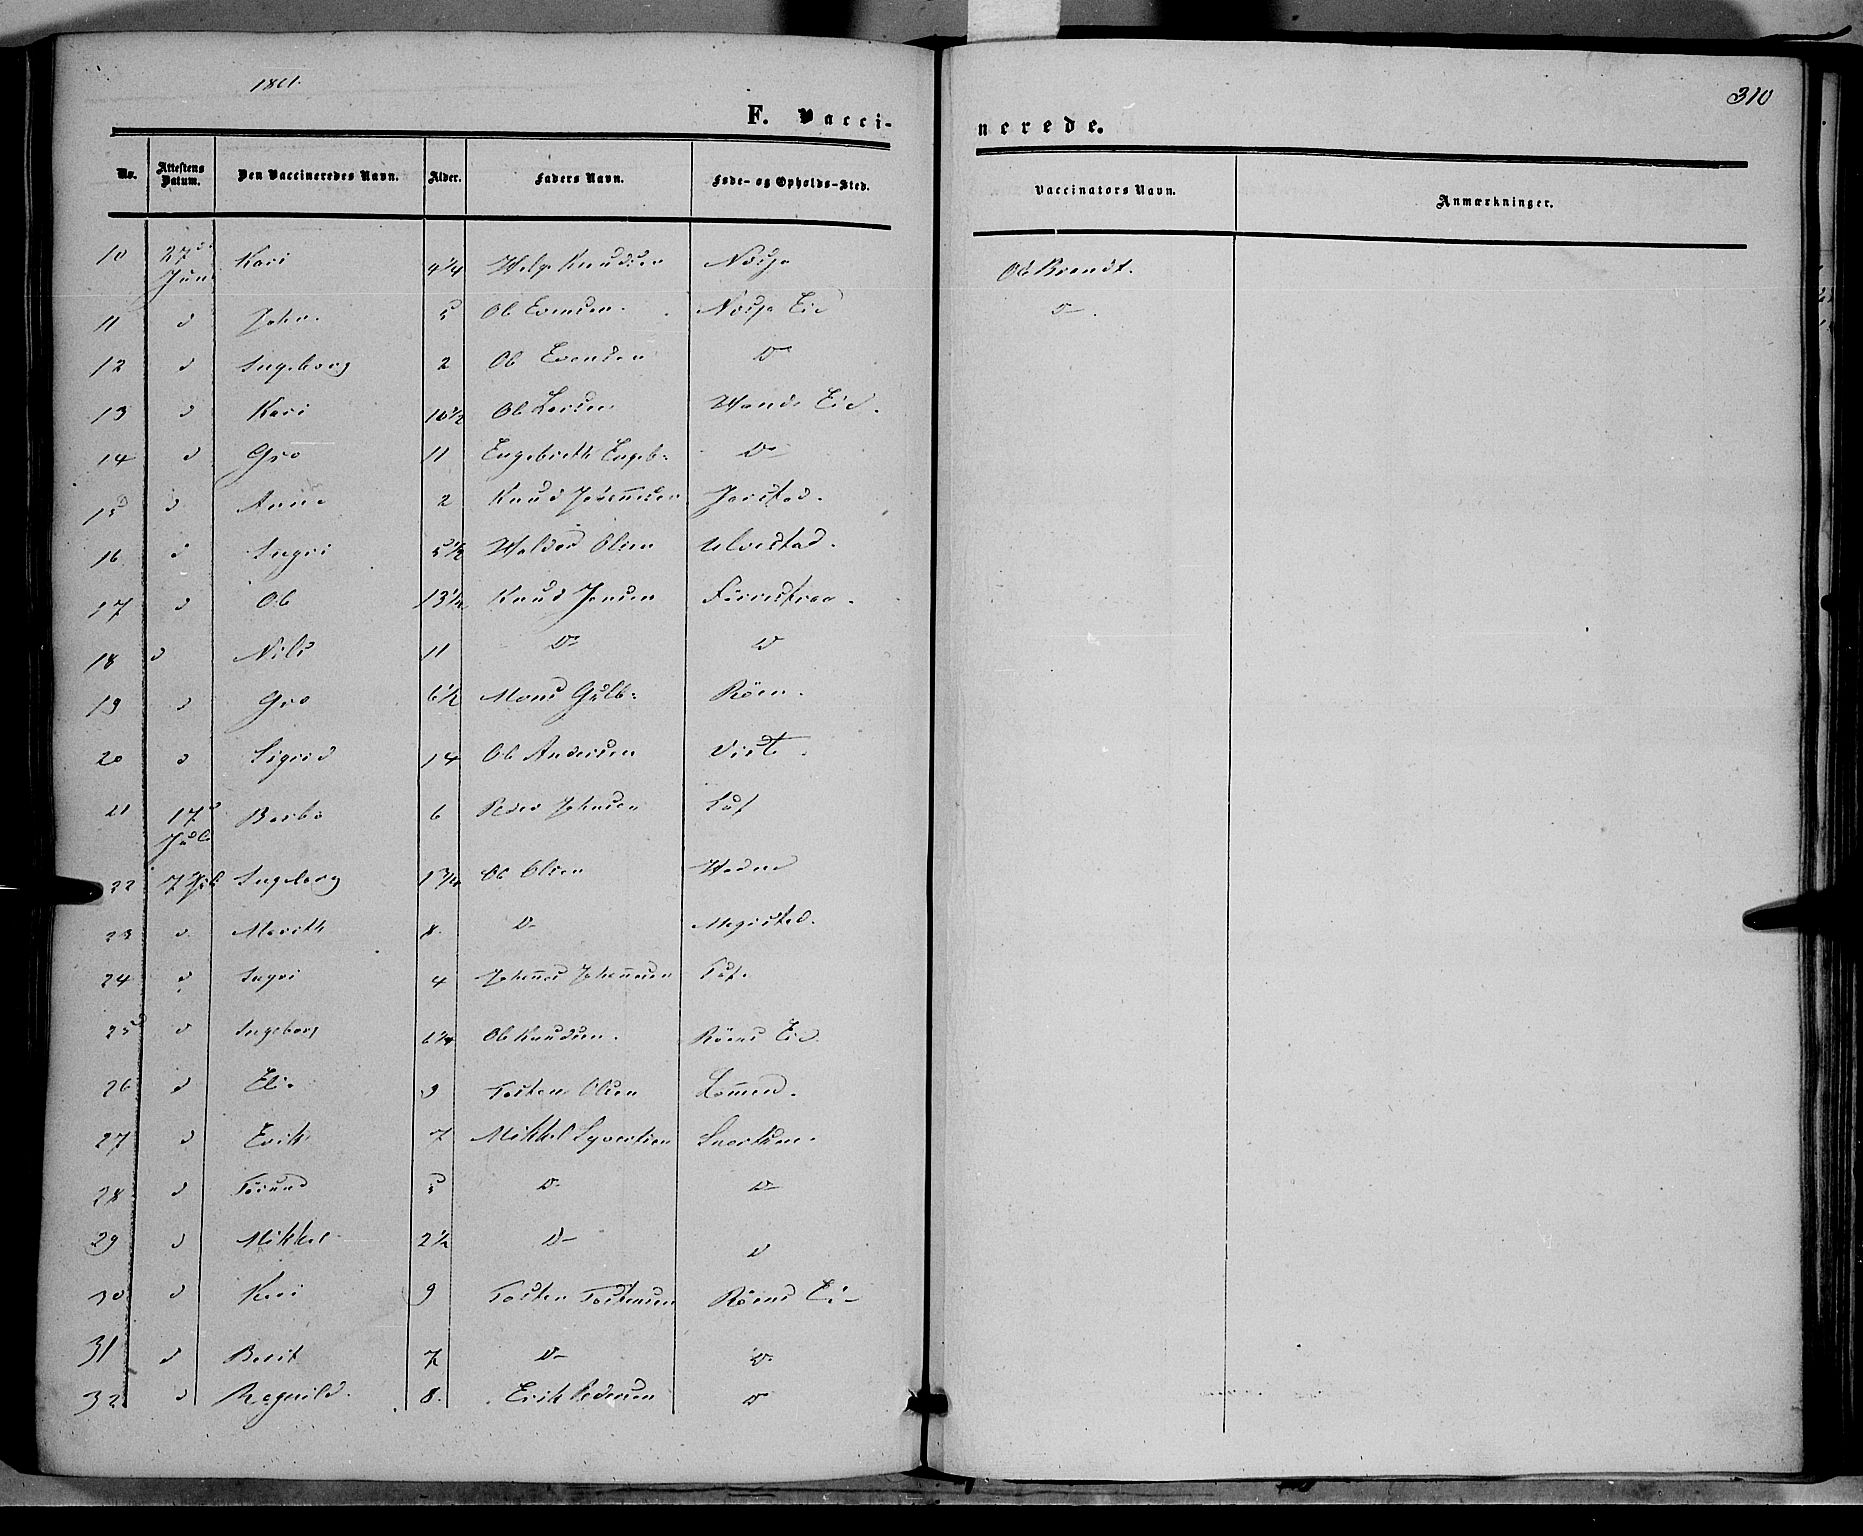 1861.
310
F. Vacci-
nerede.
No. Attestens Datum. Den Vaccineredes Navn. Alder. Faders Navn. Føde- og Opholds-Sted. Vaccinators Navn. Anmærkninger.
10 27d Juni Kari 4 1/4 Helge Knudsen Nøsja Ole Brandt.
11 d John. 5 Ole Evensen. Nøsja Eid d-.
12 d Ingeborg 2 Ole Evensen D
13 d Kari 10 1/2 Ole Larsen Eid.
14 d Gro 11 Engebreth Engeb: D-
15 d Anne 2 Knud Johannesen Jarstad.
16 d Ingri 5 1/2 Haldor Olsen Ulvestad.
17 d Ole 13 1/2 Knud Jensen
18 d Nils 11 D- D
19 d Gro 6 1/2 Mons Gulb: Röen.
20 d Sigrid 14 Ole Andersen
21 17d Juli Barbo 6 Peder Johnsen
22 7 Ingeborg Ole Olsen
23 d Marith 8. D- Magistad.
24 d Ingri 4 Johannes Johannesen
25 d Ingeborg Ole Knudsen. Röens Eid.
26 d Eli. 9 Tosten Olsen Lomen.
27 d Erik 7 Mikkel Syvertsen
28 d Jörund 5 D- D-
29 d Mikkel 2 1/2 D- d
30 d Kari 9 Tosten Tostensen Röens Ei-
31 d Berit 7 D- D-
32 d Ragnild. 8. Erik Pedersen D